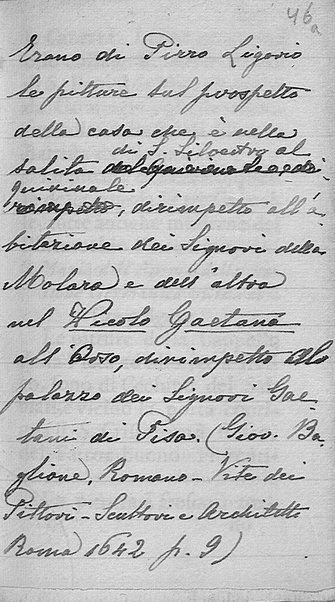 46a
Erano di Pirro Ligorio
le pitture sul prospetto
della casa che è nella
di S. Silvestro al
salita
quirinale
rimpetto, dirimpetto all'a-
bitazione dei Signori della
Molara e dell'altra
nel Vicolo Gaetana
all'Orso, dirimpetto al
palazzo dei Signori Gae-
tani di Pisa. (Giov. Ba-
glione, Romano - Vite dei
Pittori - Scultori e Architetti
Roma 1642 p. 9)